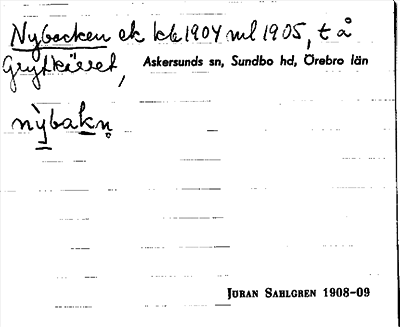 Nybacken ek kb 1904 ml 1905, t å
Grytkärret, Askersunds sn, Sundbo hd, Örebro län
nỳbakn̥
JÖRAN SAHLGREN 1908-09